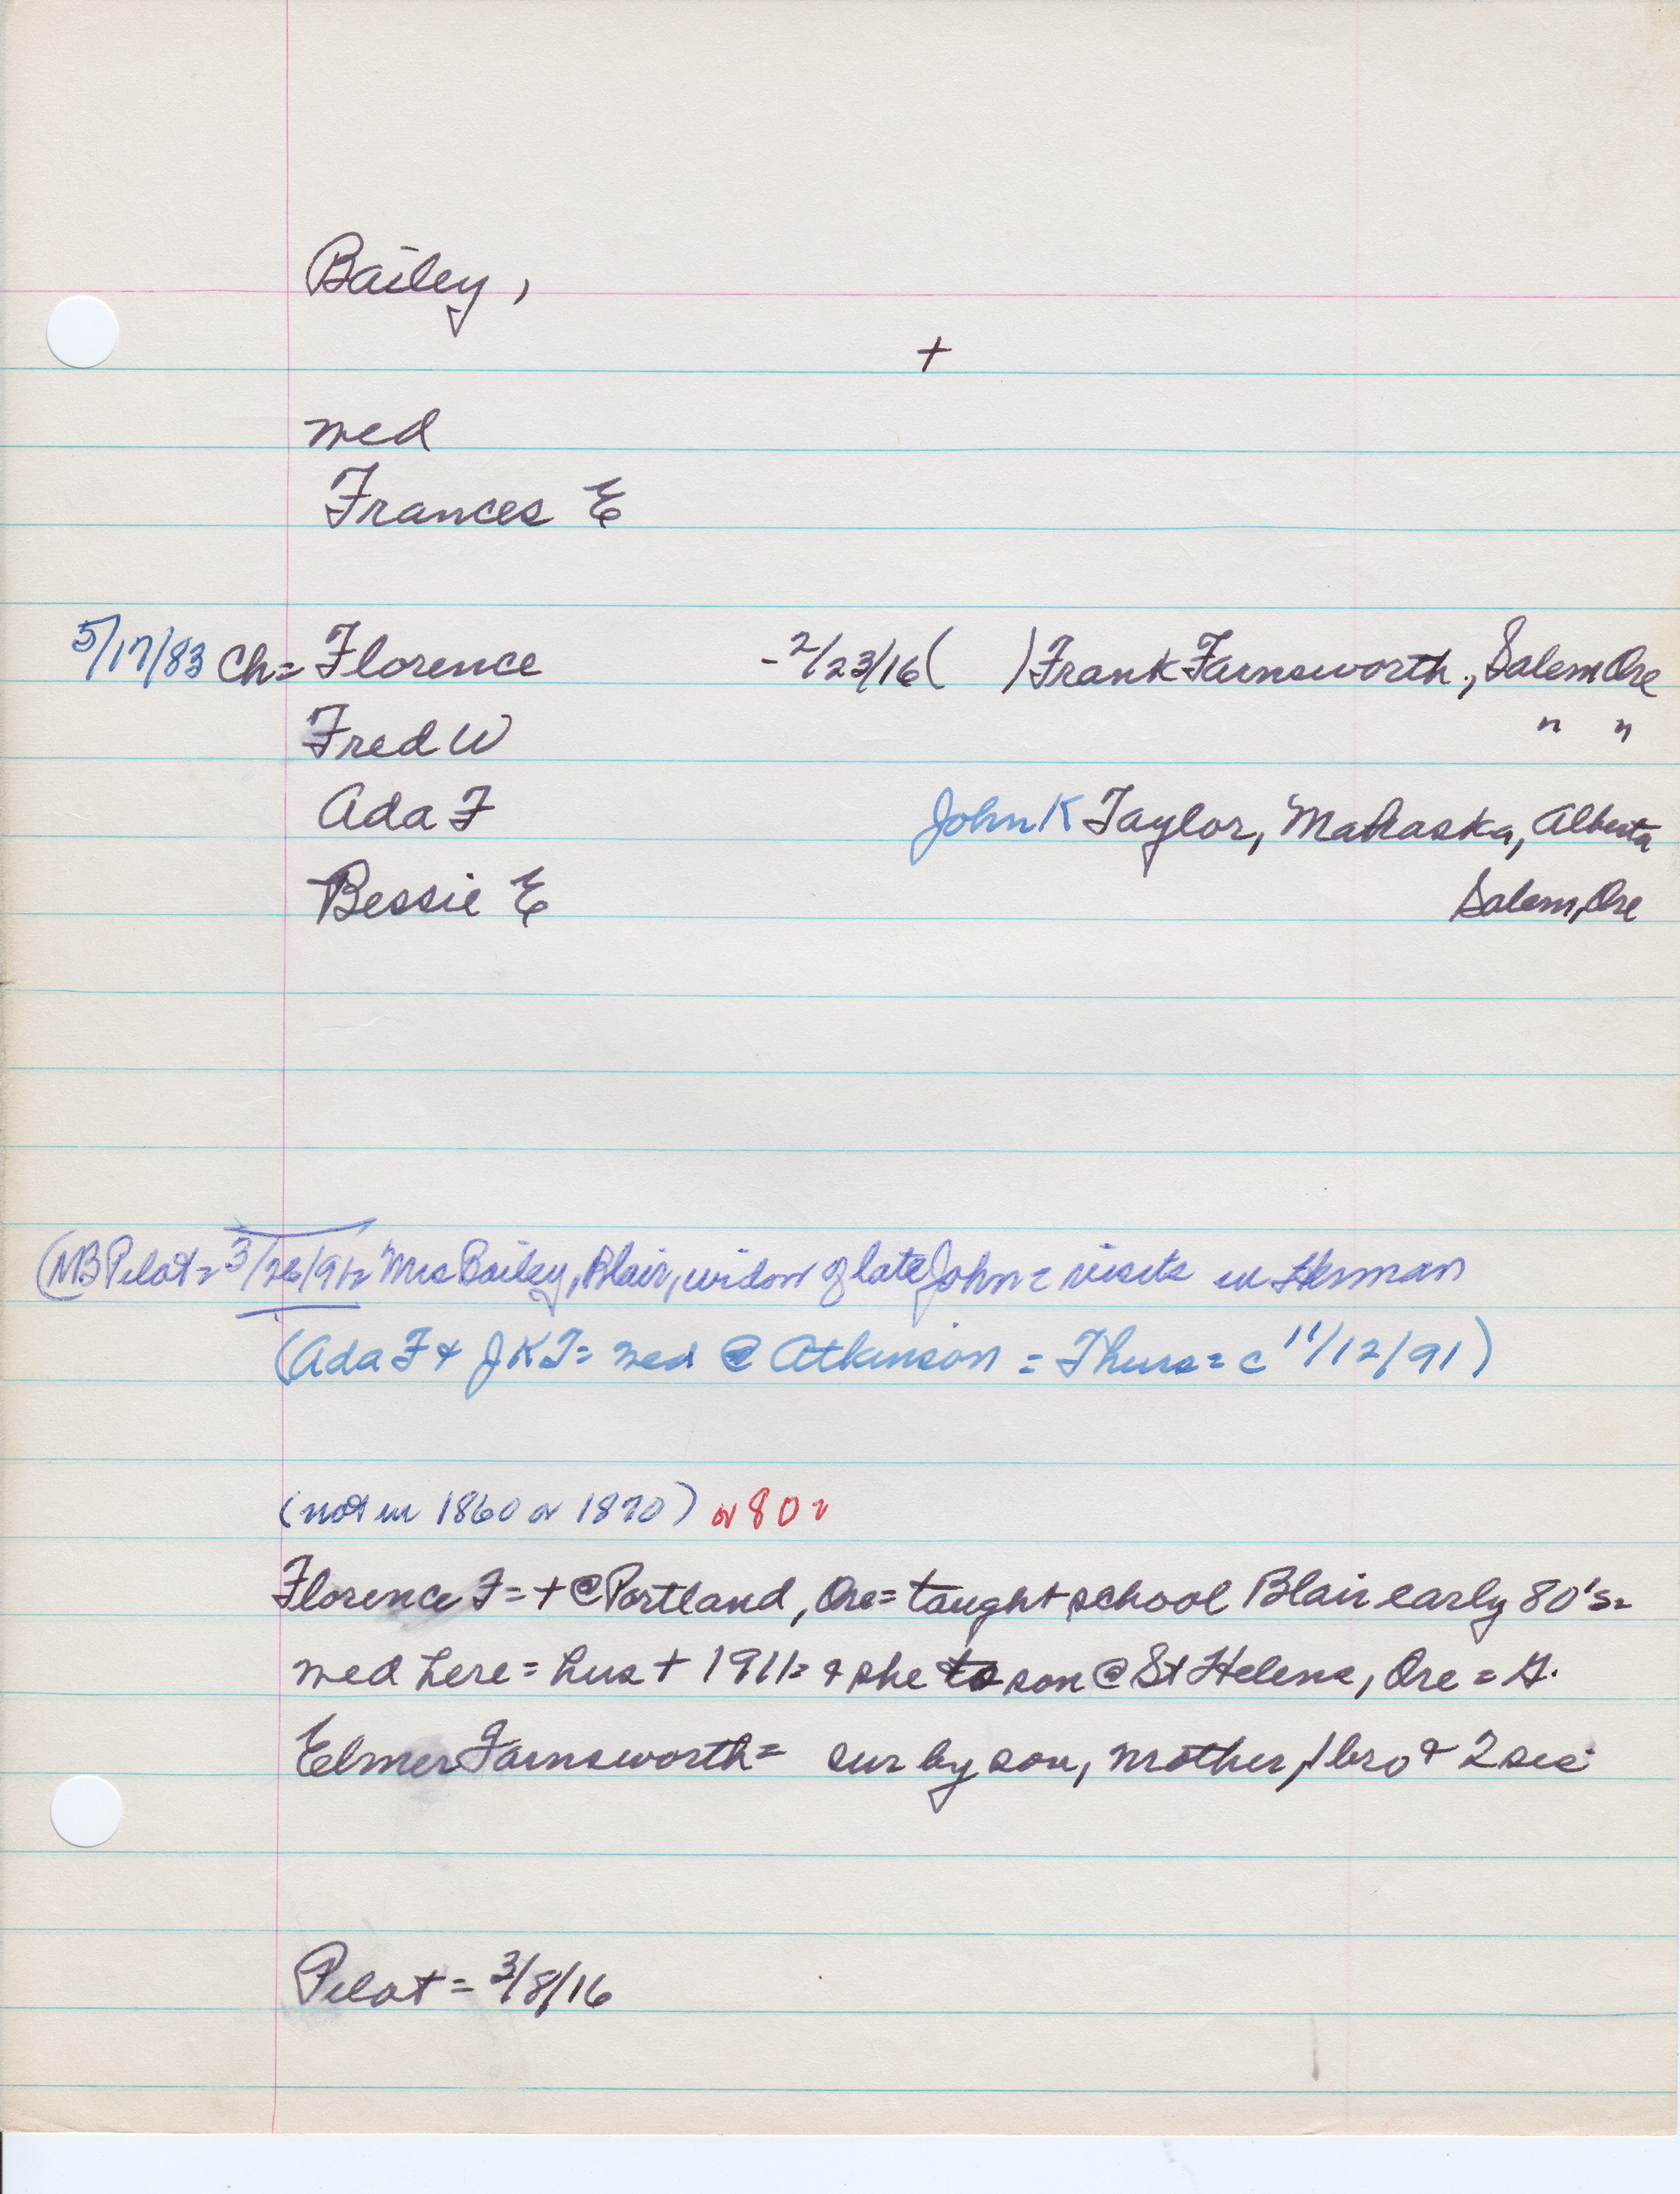 Bailey,
+
med
Frances E
5/17/83 Ch= Florence -2/23/16( ) Frank Farnsworth, Salem Ore
Fred W " "
Ada F John K Taylor, Alberta
Bessie E Salem, Ore
(NB Pilot= 3/26/91= Mrs Bailey, Blair, widow of late John = visits in Herman
(Ada F & JKT= med @ Atkinson = Thurs= c 11/12/91)
(not in 1860 or 1870) or 80=
Florence F= + @ Portland, Ore= taught school Blair early 80's=
med here = hus + 1911= & she to son @ St Helens, Ore = G.
Elmer Farnsworth= sur by son, mother, 1 bro & 2 sis
Pilot = 3/8/16